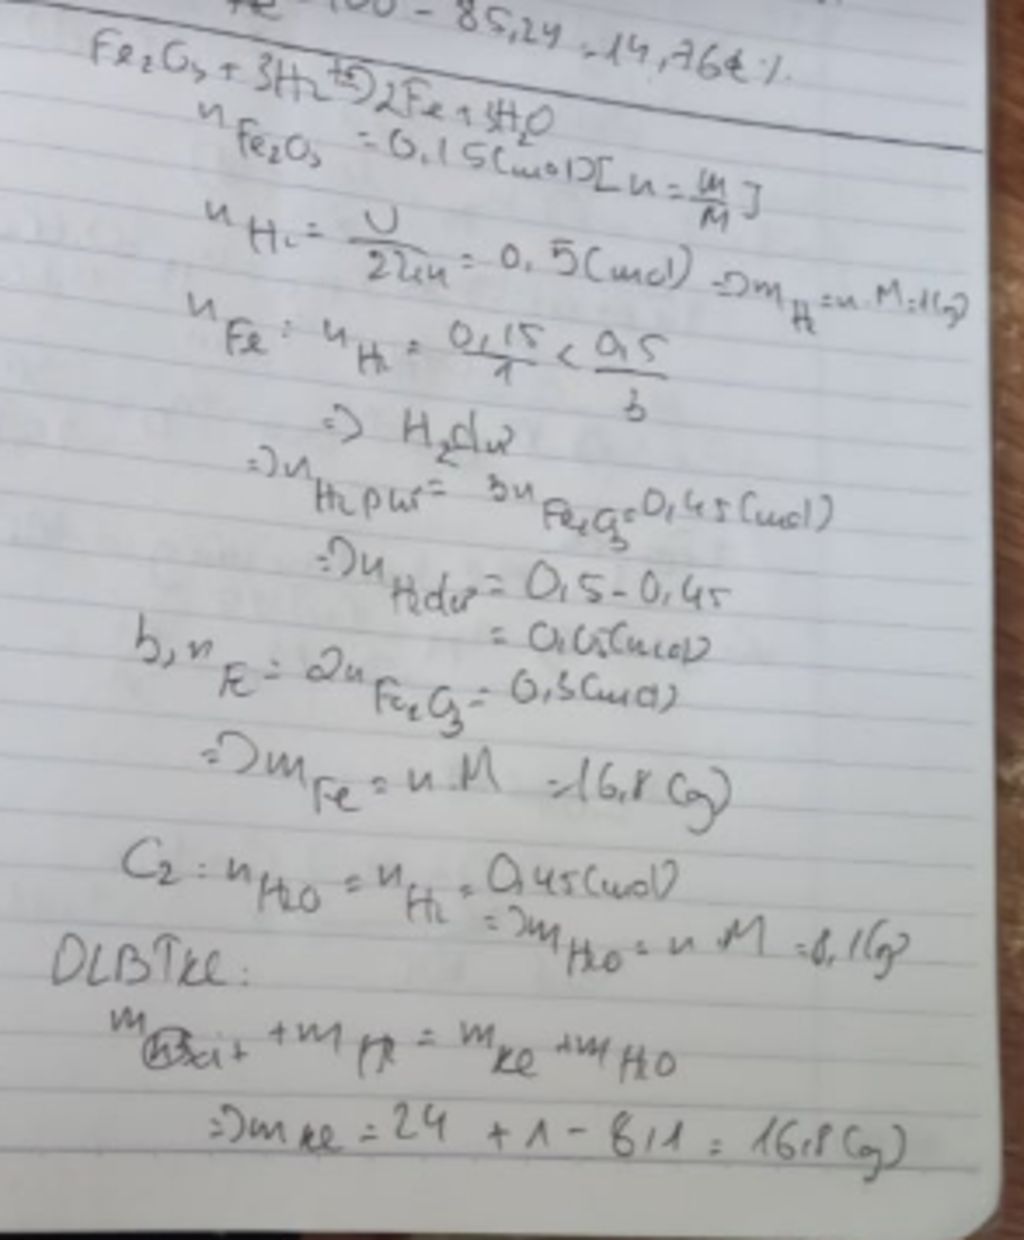 Fe = 100 - 85,24 = 14,76 %.
Fe₂O₃ + 3H₂ →(t°) 2Fe + 3H₂O
n Fe₂O₃ = 0,15 (mol) [n = m/M]
n H₂ = V/22,4 = 0,5 (mol) => m H₂ = n.M = 1(g)
n Fe : n H₂ = 0,15/1 < 0,5/3
=> H₂ dư
=> n H₂ pư = 3n Fe₂O₃ = 0,45 (mol)
=> n H₂ dư = 0,5 - 0,45
= 0,05 (mol)
b, n Fe = 2n Fe₂O₃ = 0,3 (mol)
=> m Fe = n.M = 16,8 (g)
C2 : n H₂O = n H₂ = 0,45 (mol)
=> m H₂O = n.M = 8,1(g)
ĐLBTKL:
m + m H₂ = m KL + m H₂O
=> m KL = 24 + 1 - 8,1 = 16,8 (g)